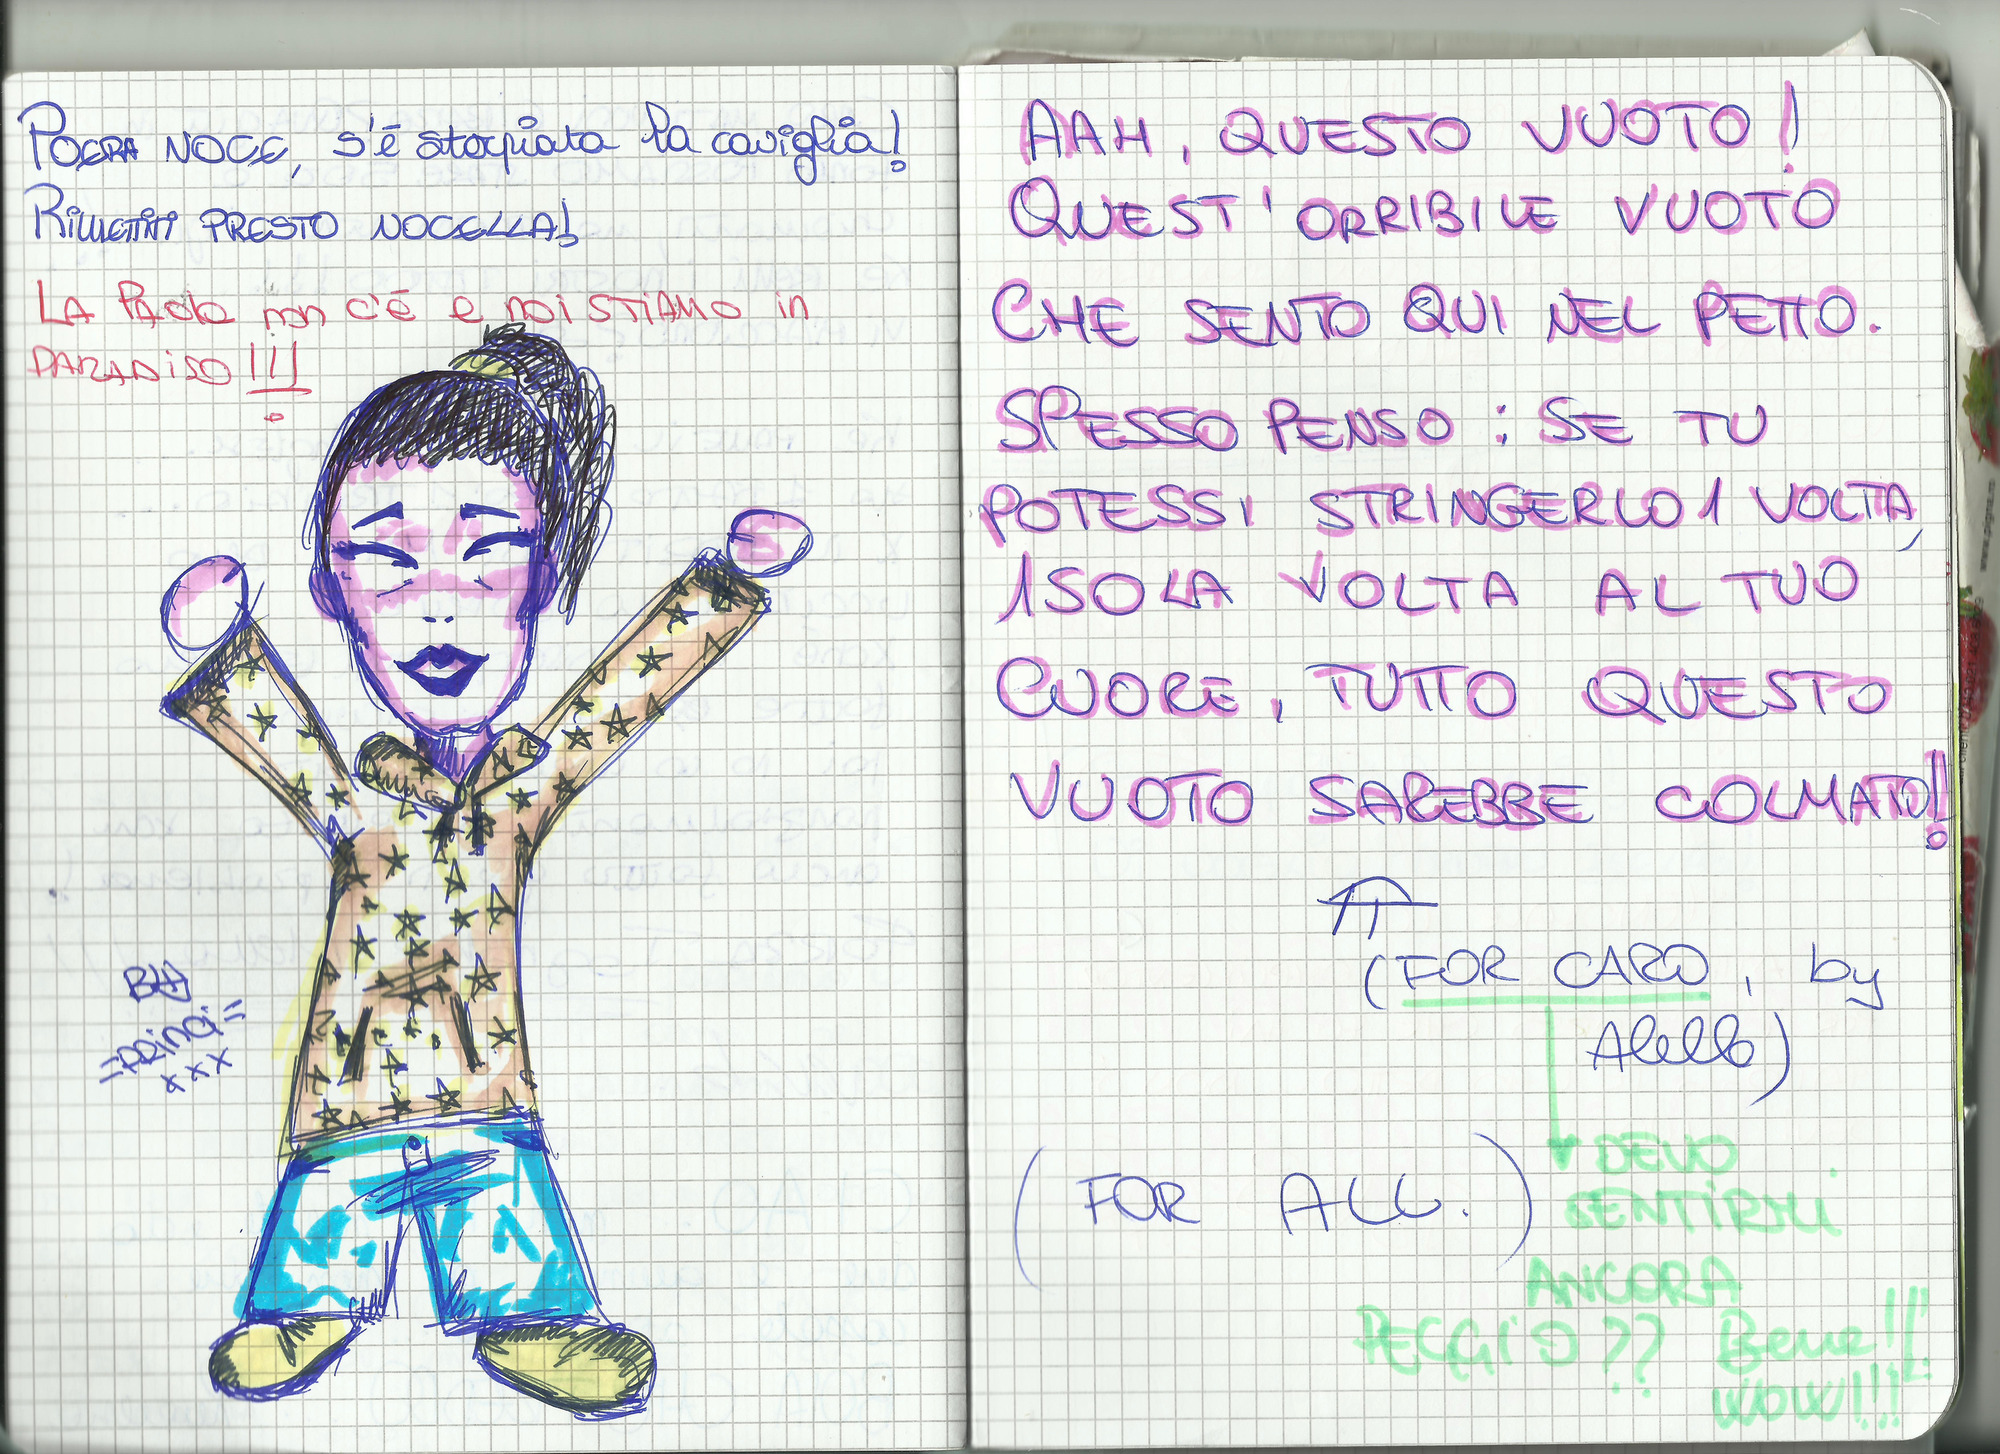 POERA NOCE, s'è storpiata la caviglia!
RIMETTITI PRESTO NOCELLA!
LA PAOLA non c'è e noi STIAMO in
PARADISO!!!
BY
=PRINCI=
xxx
AAH, QUESTO VUOTO!
QUEST'ORRIBILE VUOTO
CHE SENTO QUI NEL PETTO.
SPESSO PENSO: SE TU
POTESSI STRINGERLO 1 VOLTA,
1 SOLA VOLTA AL TUO
CUORE, TUTTO QUESTO
VUOTO SAREBBE COLMATO!!
(FOR CARO, by
Alello)
DEVO
SENTIRMI
(FOR ALL.)
ANCORA
PEGGIO?? Bene!!!
WOW!!!